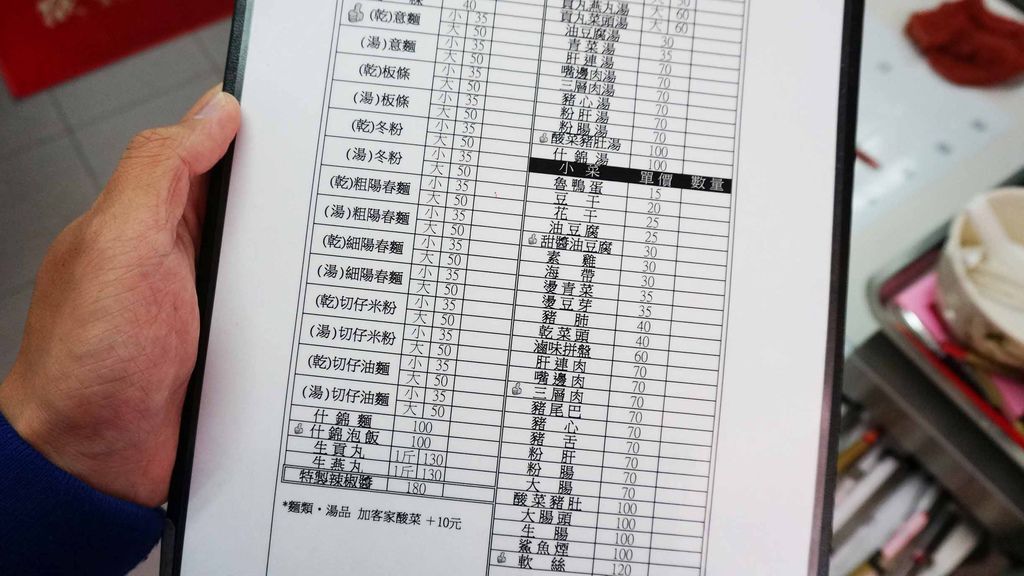 40
(乾)意麵 小 35
大 50
(湯)意麵 小 35
大 50
(乾)板條 小 35
大 50
(湯)板條 小 35
大 50
(乾)冬粉 小 35
大 50
(湯)冬粉 小 35
大 50
(乾)粗陽春麵 小 35
大 50
(湯)粗陽春麵 小 35
大 50
(乾)細陽春麵 小 35
大 50
(湯)細陽春麵 小 35
大 50
(乾)切仔米粉 小 35
大 50
(湯)切仔米粉 小 35
大 50
(乾)切仔油麵 小 35
大 50
(湯)切仔油麵 小 35
大 50
什錦麵 100
什錦泡飯 100
生貢丸 1斤 130
生燕丸 1斤 130
特製辣椒醬 180
*麵類・湯品 加客家酸菜 +10元
貢丸湯 大 60
貢丸菜頭湯
大 60
油豆腐湯 30
青菜湯 35
肝連湯 70
嘴邊肉湯 70
三層肉湯 70
豬心湯 70
粉肝湯 70
粉腸湯 70
酸菜豬肚湯 100
什錦湯 100
小菜 單價 數量
魯鴨蛋 15
豆干 20
花干 25
油豆腐 25
甜醬油豆腐 30
素雞 30
海帶 30
燙青菜 35
燙豆芽 35
豬肺 40
乾菜頭 40
滷味拼盤 60
肝連肉 70
嘴邊肉 70
三層肉 70
豬尾巴 70
豬心 70
豬舌 70
粉肝 70
粉腸 70
大腸 70
酸菜豬肚 100
大腸頭 100
生腸 100
鯊魚煙 100
軟絲 120